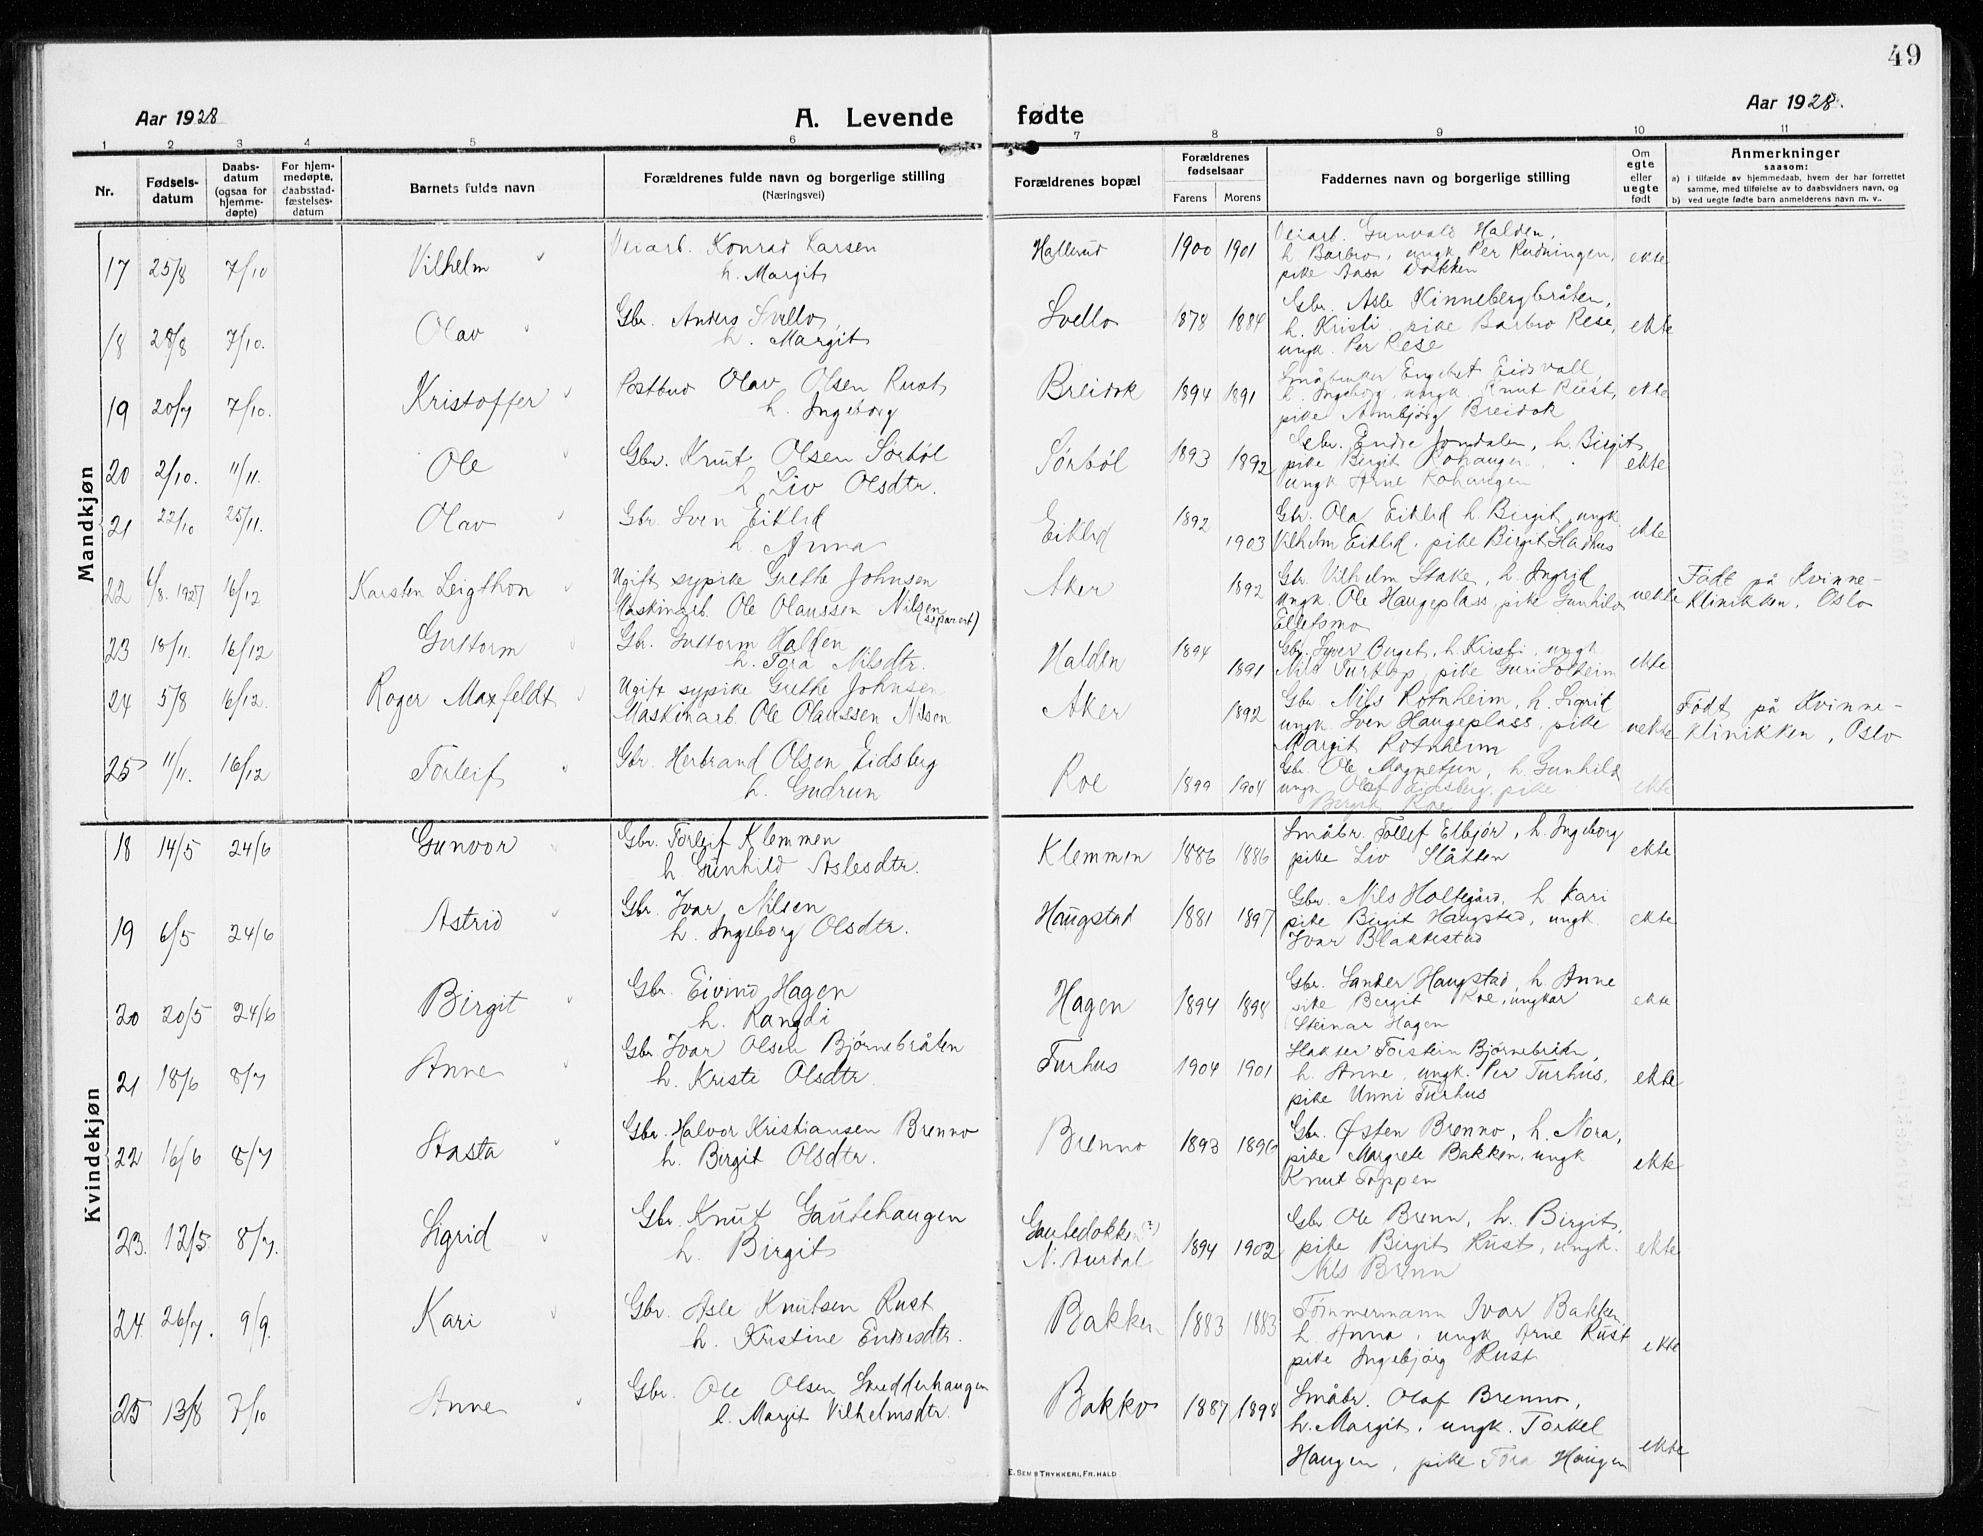 49
Aar 1928
A. Levende fødte
Aar 1928.
1 2 3 4 5 6 7 8 9 10 11
Nr.
Fødsels-
datum
Daabs-
datum
(ogsaa for
hjemme-
døpte)
For hjem-
medøpte,
daabsstad-
fæstelses-
datum
Barnets fulde navn
Forældrenes fulde navn og borgerlige stilling
(Næringsvei)
Forældrenes bopæl
Forældrenes
fødselsaar
Farens Morens
Faddernes navn og borgerlige stilling
Om
egte
eller
uegte
født
Anmerkninger
saasom:
a) i tilfælde av hjemmedaab, hvem der har forrettet
samme, med tilføielse av to daabsvidners navn, og
b) ved uegte fødte barn anmelderens navn m. v..
Mandkjøn
17 25/8 7/10 Vilhelm Veiarb. Konrad Larsen
h. Margit
Hallerud 1900 1901
Veiarb. Gunvald Halden,
h Barbro, ungk. Per Rudningen,
pike Aasa Dokken
ekte
18 28/8 7/10. Olav Gbr. Anders Svello,
h. Margit
Svello 1878 1884
Gbr. Asle Kinnebergbråten,
h. Kristi, pike Barbro Rese,
ungk. Per Rese
ekte
19 20/7 7/10. Kristoffer Postbud Olav Olsen Rust
h. Ingeborg
Breidok 1894 1891
Småbruker Engebret Eidsvall,
h. Ingeborg, ungk. Knut Rust,
pike Annbjørg Breidok
ekte
20 2/10. 11/11. Ole Gbr. Knut Olsen Sørbøl
h Liv Olsdtr.
Sørbøl 1893 1892
Gbr. Endre Jondalen, h. Birgit,
pike Birgit Rohaugen
ungk Arne Rohaugen
ekte
21 22/10 25/11. Olav Gbr. Sven Eiklid
h. Anna
Eiklid 1892 1903
Gbr. Ola Eiklid h. Birgit, ungk
Vilhelm Eiklid, pike Birgit Hadhus
ekte
22 6/8. 1927 16/12 Karsten Leigthon Ugift sypike Grethe Johnsen
Maskinarb. Ole Olaussen Nilsen
(separert)
Aker 1892
Gbr. Vilhelm Stake, h. Ingrid
Ungk. Ole Haugeplass, pike Gunhild
Ellefsmo
uekte
Født på Kvinne-
klinikken, Oslo
23 18/11. 16/12 Guttorm Gbr. Guttorm Halden
h. Tora Nilsdtr.
Halden 1894 1891
Gbr. Syver Berget, h. Kristi, ungk
Nils Turkop, pike Guri Solheim
ekte
24 5/8 16/12. Roger Maxfeldt Ugift sypike Grethe Johnsen
Maskinarb. Ole Olaussen Nilsen
Aker 1892
Gbr. Nils Rotnheim, h. Sigrid
ungk. Sven Haugeplass, pike
Margit Rotnheim
uekte
Født på Kvinne-
klinikken, Oslo
25 11/11. 16/12 Torleif Gbr. Herbrand Olsen Eidsberg
h. Gudrun
Roe 1899 1904
Gbr. Ole Magnetun, h. Gunhild
ungk Olaf Eidsberg, pike
Bergit Roe
ekte
Kvindekjøn
18 14/5 24/6 Gunvor Gbr. Torleif Klemmen
h Gunhild Aslesdtr.
Klemmen 1886 1886
Småbr. Tollef Elbjør, h. Ingeborg
pike Liv Slåtten
ekte
19 6/5 24/6 Astrid Gbr. Ivar Nilsen
h. Ingeborg Olsdtr.
Haugstad 1881 1897
Gbr. Nils Holtegård, h Kari
pike Birgit Haugstad, ungk.
Ivar Blakkestad
ekte
20 20/5 24/6 Birgit Gbr. Eivind Hagen
h. Rangdi
Hagen 1894 1898
Gbr. Sander Haugstad, h. Anne
pike Bergit Roe, ungkar
Steinar Hagen
ekte
21 18/6 8/7 Anne Gbr Ivar Olsen Bjørnebråten
h. Kristi Olsdtr
Turhus 1904 1901
Slakter Torstein Bjørnebråten,
h. Anne, ungk. Per Turhus,
pike Unni Turhus
ekte
22 16/6 8/7 Aasta Gbr. Halvor Kristiansen Brenno
h. Birgit Olsdtr.
Brenno 1893 1896
Gbr. Østen Brenno, h. Nora,
pike Margrete Bakken, ungk
Knut Toppen
ekte
23. 12/5. 8/7. Sigrid Gbr. Knut Gautehaugen
h. Birgit
Gautedokken (?)
N. Aurdal
1894 1902
Gbr Ole Brenn, h. Birgit,
pike Birgit Rust, ungk.
Nils Brenn
ekte
24. 26/7. 9/9. Kari Gbr. Asle Knutsen Rust
h. Kristine Endresdtr.
Bakken 1883 1883
Tømmermann Ivar Bakken,
h Anna, ungk Arne Rust
pike Ingebjørg Rust
ekte
25 13/8 7/10 Anne Gbr. Ole Olsen Skredderhaugen
h. Margit Vilhelmsdtr.
Bakko 1887 1898
Småbr. Olaf Brenno,
h. Margit, ungk. Torkel
Haugen, pike Tora Haugen
ekte
E. SEM'S TRYKKERI, FR.HALD